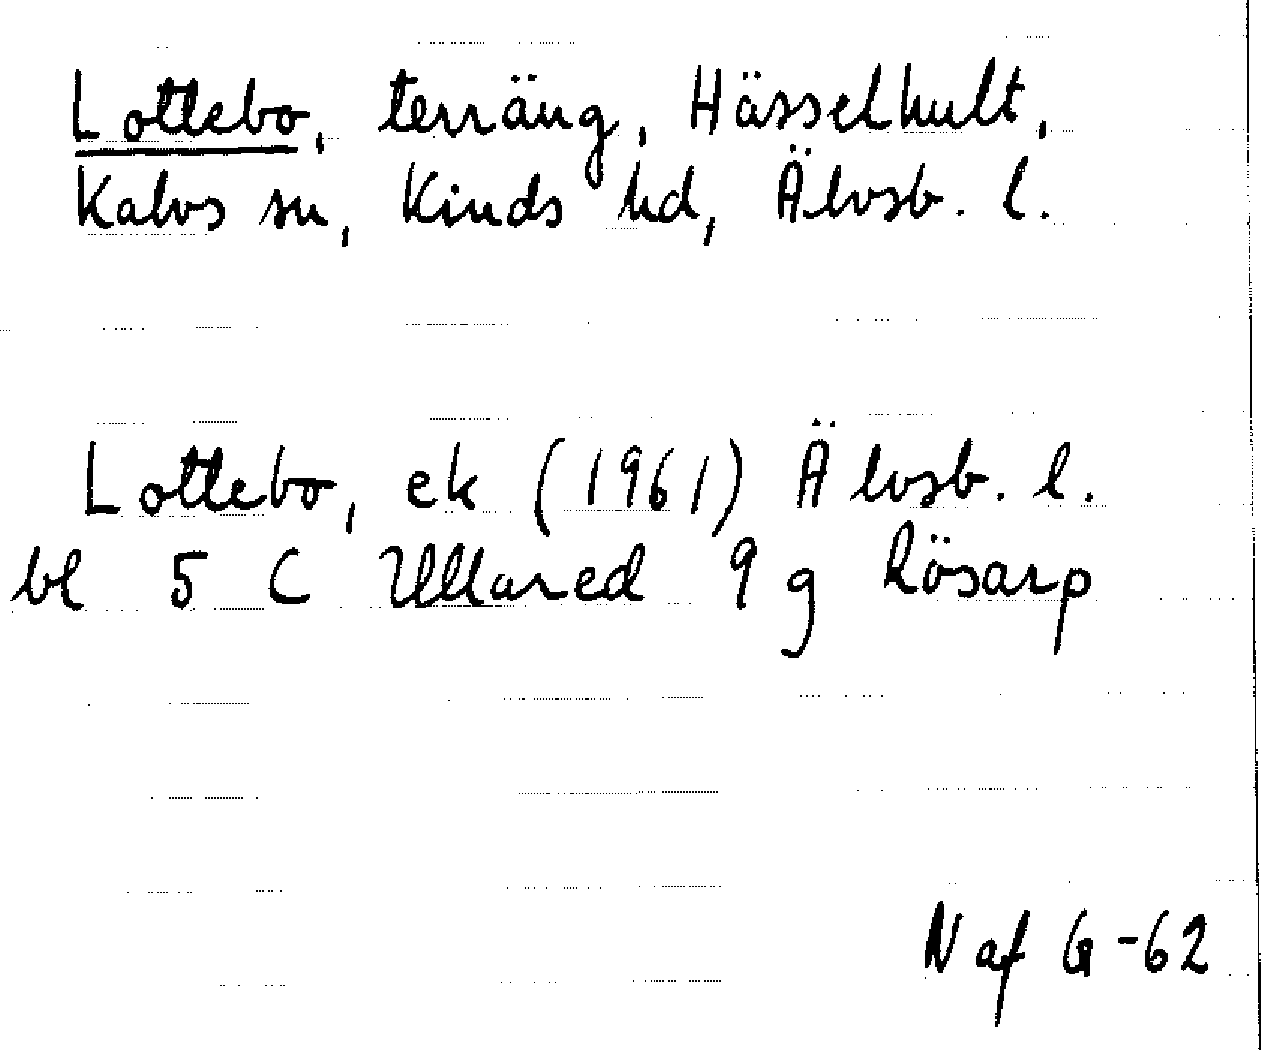 Lottebo, terräng, Hässelhult,
Kalvs sn, Kinds hd, Älvsb. l.
Lottebo, ek (1961) Älvsb. l.
bl 5 C Ullared 9 g Lösarp
N af G-62